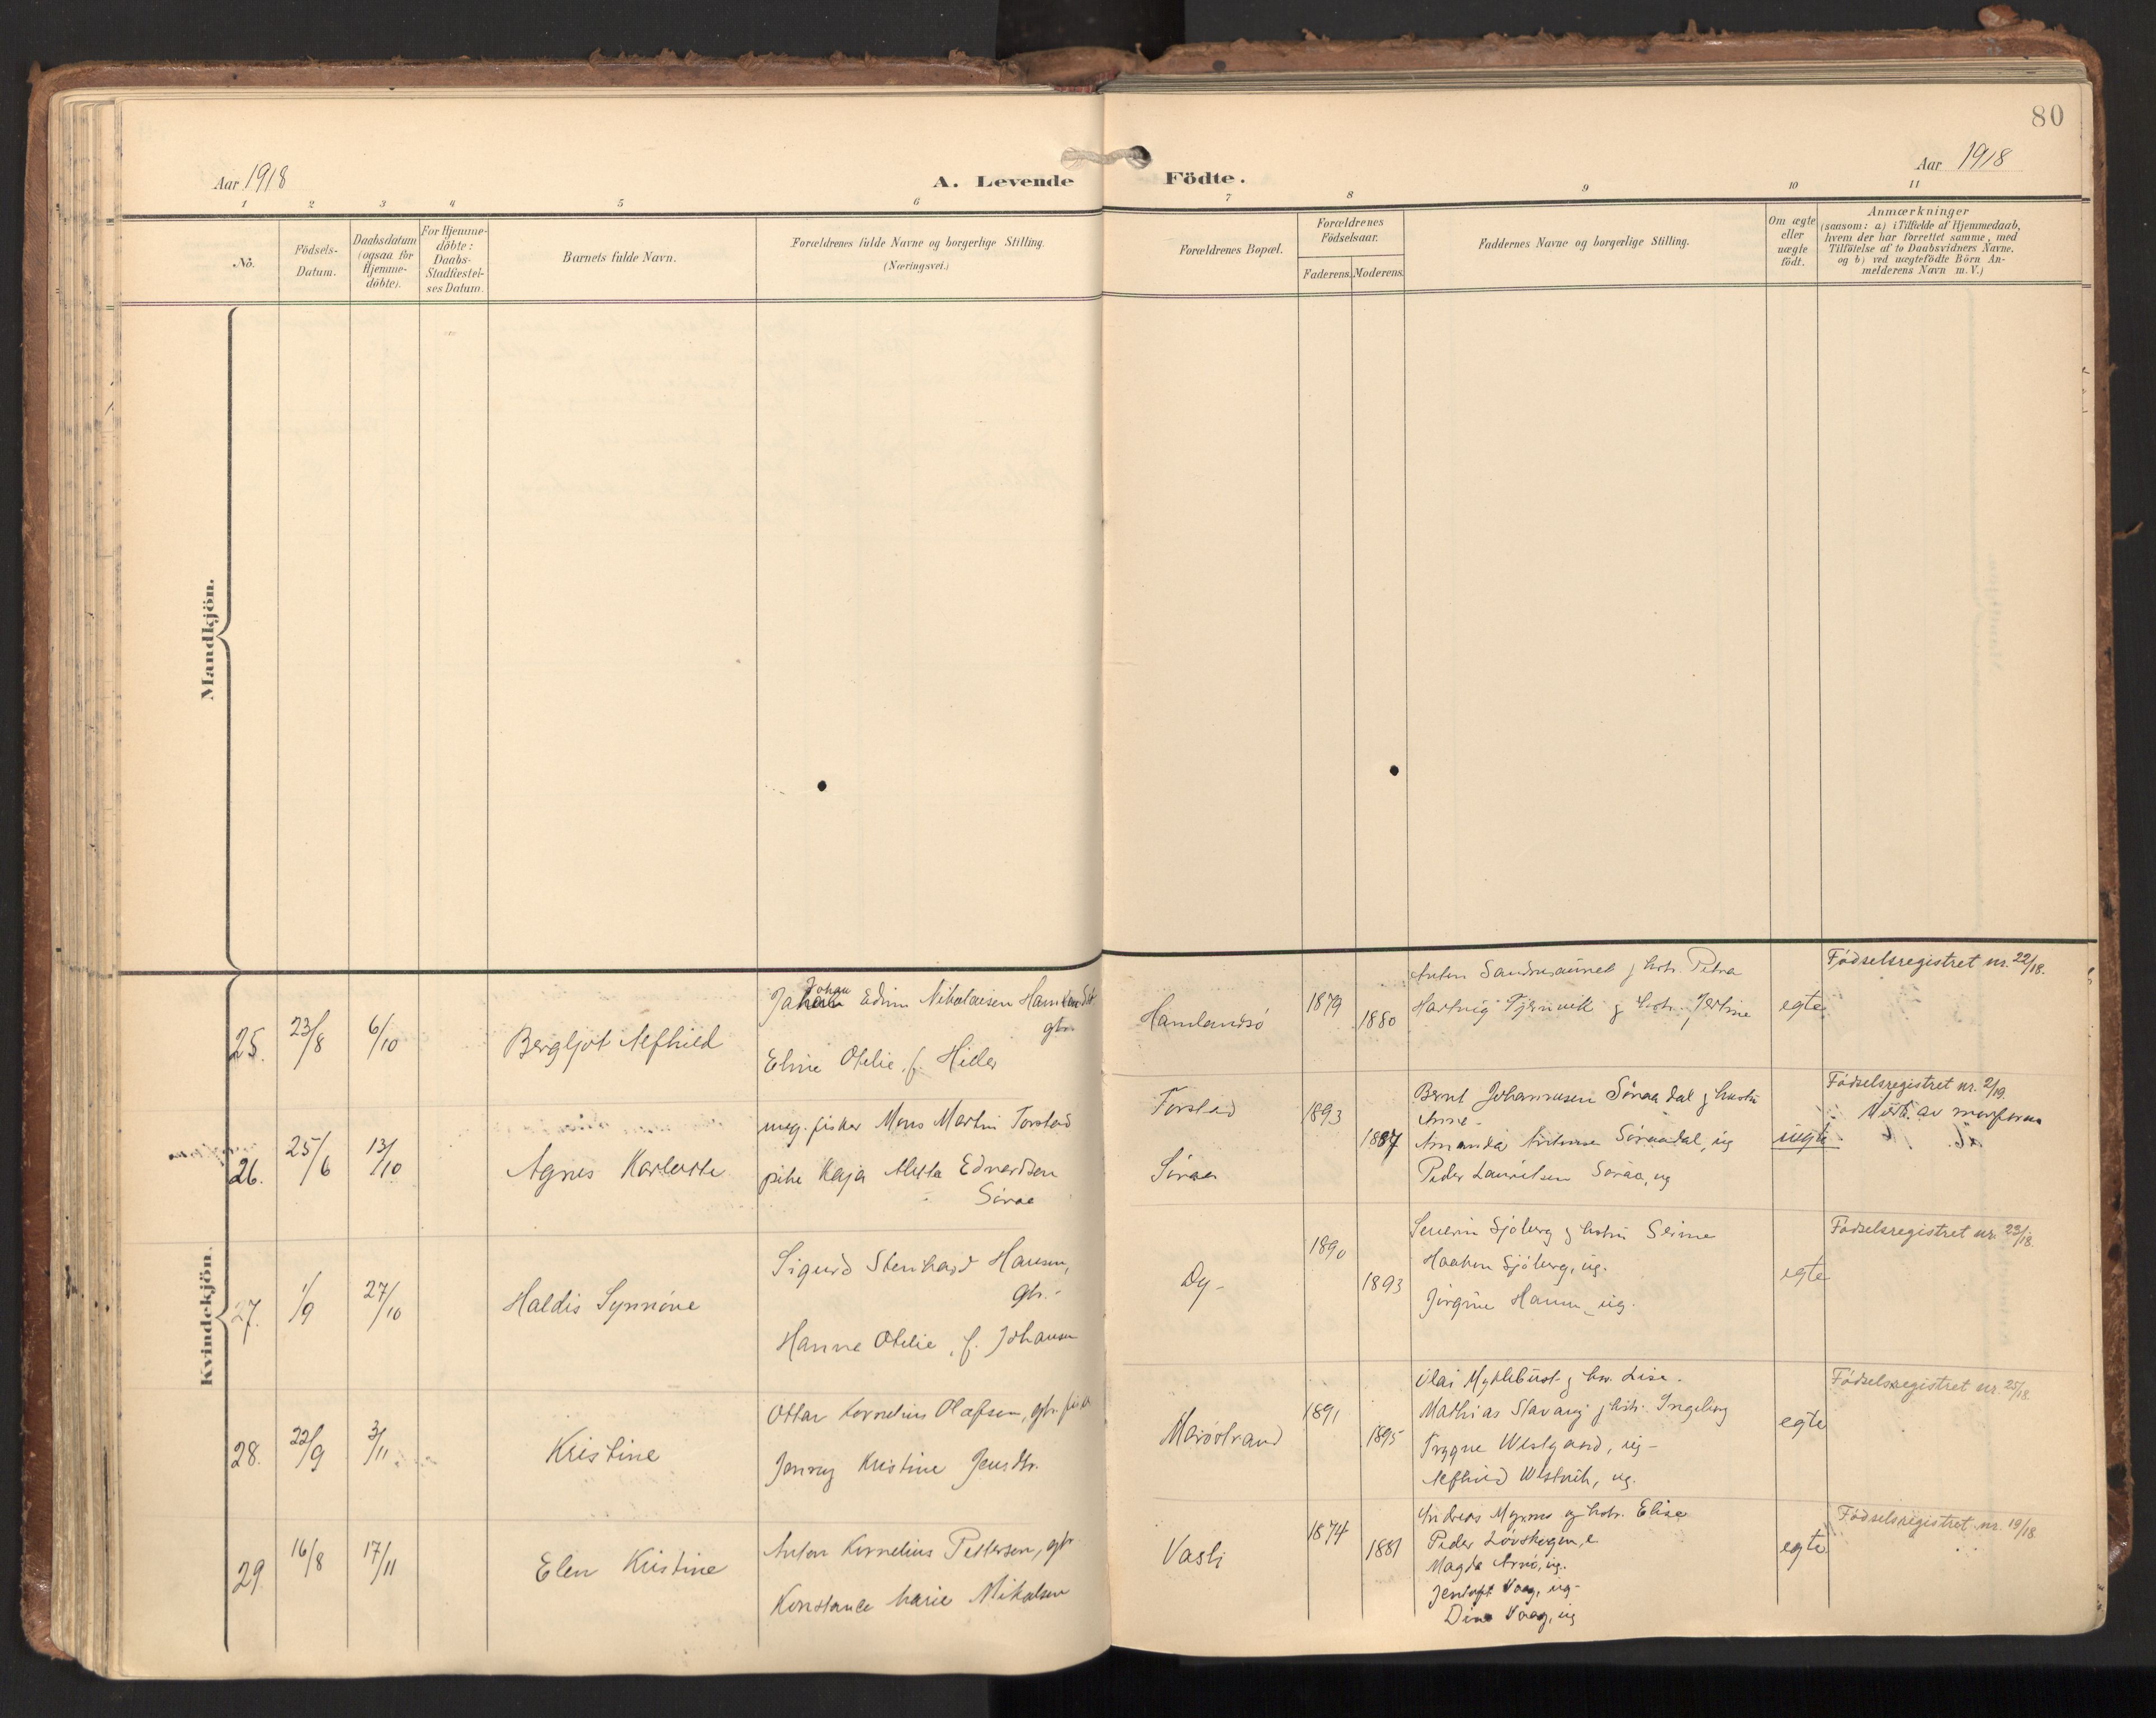 80
Aar 1918
A. Levende Födte.
Aar 1918
1 2 3 4 5 6 7 8 9 10 11
No.
Födsels-Datum.
Daabsdatum (ogsaa for Hjemme-döbte).
For Hjemme-döbte: Daabs-Stadfæstel-ses Datum.
Barnets fulde Navn.
Forældrenes fulde Navne og borgerlige Stilling.
(Næringsvei.)
Forældrenes Bopæl.
Forældrenes Födselsaar.
Faderens. Moderens.
Faddernes Navne og borgerlige Stilling.
Om ægte eller uægte födt.
Anmærkninger
(saasom: a) i Tilfælde af Hjemmedaab,
hvem der har forrettet samme, med
Tilföielse af to Daabsvidners Navne.
og b) ved uægtefödte Börn An-
melderens Navn m. V.)
Mandkjön.
Kvindekjön.
25. 23/8 6/10
Bergljot Alfhild
Johan Edvin Nikolaisen
gbr.
Eline Otelie, f. Hiller
Hamlandsø
1879
1880
Petra
Hartvig
egte
Födselsregistret nr. 22/18.
26. 25/6 13/10
Agnes Karlotte
ung. fisker Mons Martin Torstad
pike Kaja Edvardsen
Søraa
Torstad
Søraa
1893
1887
Bernt Johannesen Søraadal g hustru
Anne -
Amanda Søraadal, ug
Peder Lauritsen Søraa, ug
uegte
Födselsregistret nr. 2/19.
av morforen
27. 1/9 27/10
Haldis Synnöve
Sigurd Stenhard Hansen,
gbr. -
Hanne Otelie, f. Johansen
Dy -
1890
1893
Severin Sjöberg g hustru
Haakon Sjöberg, ug.
Jörgine ug.
egte
Födselsregistret nr. 23/18.
28. 22/9 3/11
Kristine
Ottar Kornelius Olafsen, gbr. fisk
Jenny Kristine Jensdtr.
Marøstrand
1891
1895
Olai Myklebust g hu. Lise.
Mathias Slavang g hstr. Ingeborg
Trygve Westgaard, ug -
Alfhild Westvik, ug.
egte
Födselsregistret nr. 25/18
29. 16/8 17/11
Elen Kristine
Anton Kornelius Pettersen, gbr.
Konstance Marie Mikalsen
Vasli
1874
1881
Andreas g hstr. Elise
Peder Løvskogen, e.
Magda Arnö, ug.
Jentoft Vaag, ug -
Dina Vaag, ug
egte
Födselsregistret nr. 19/18